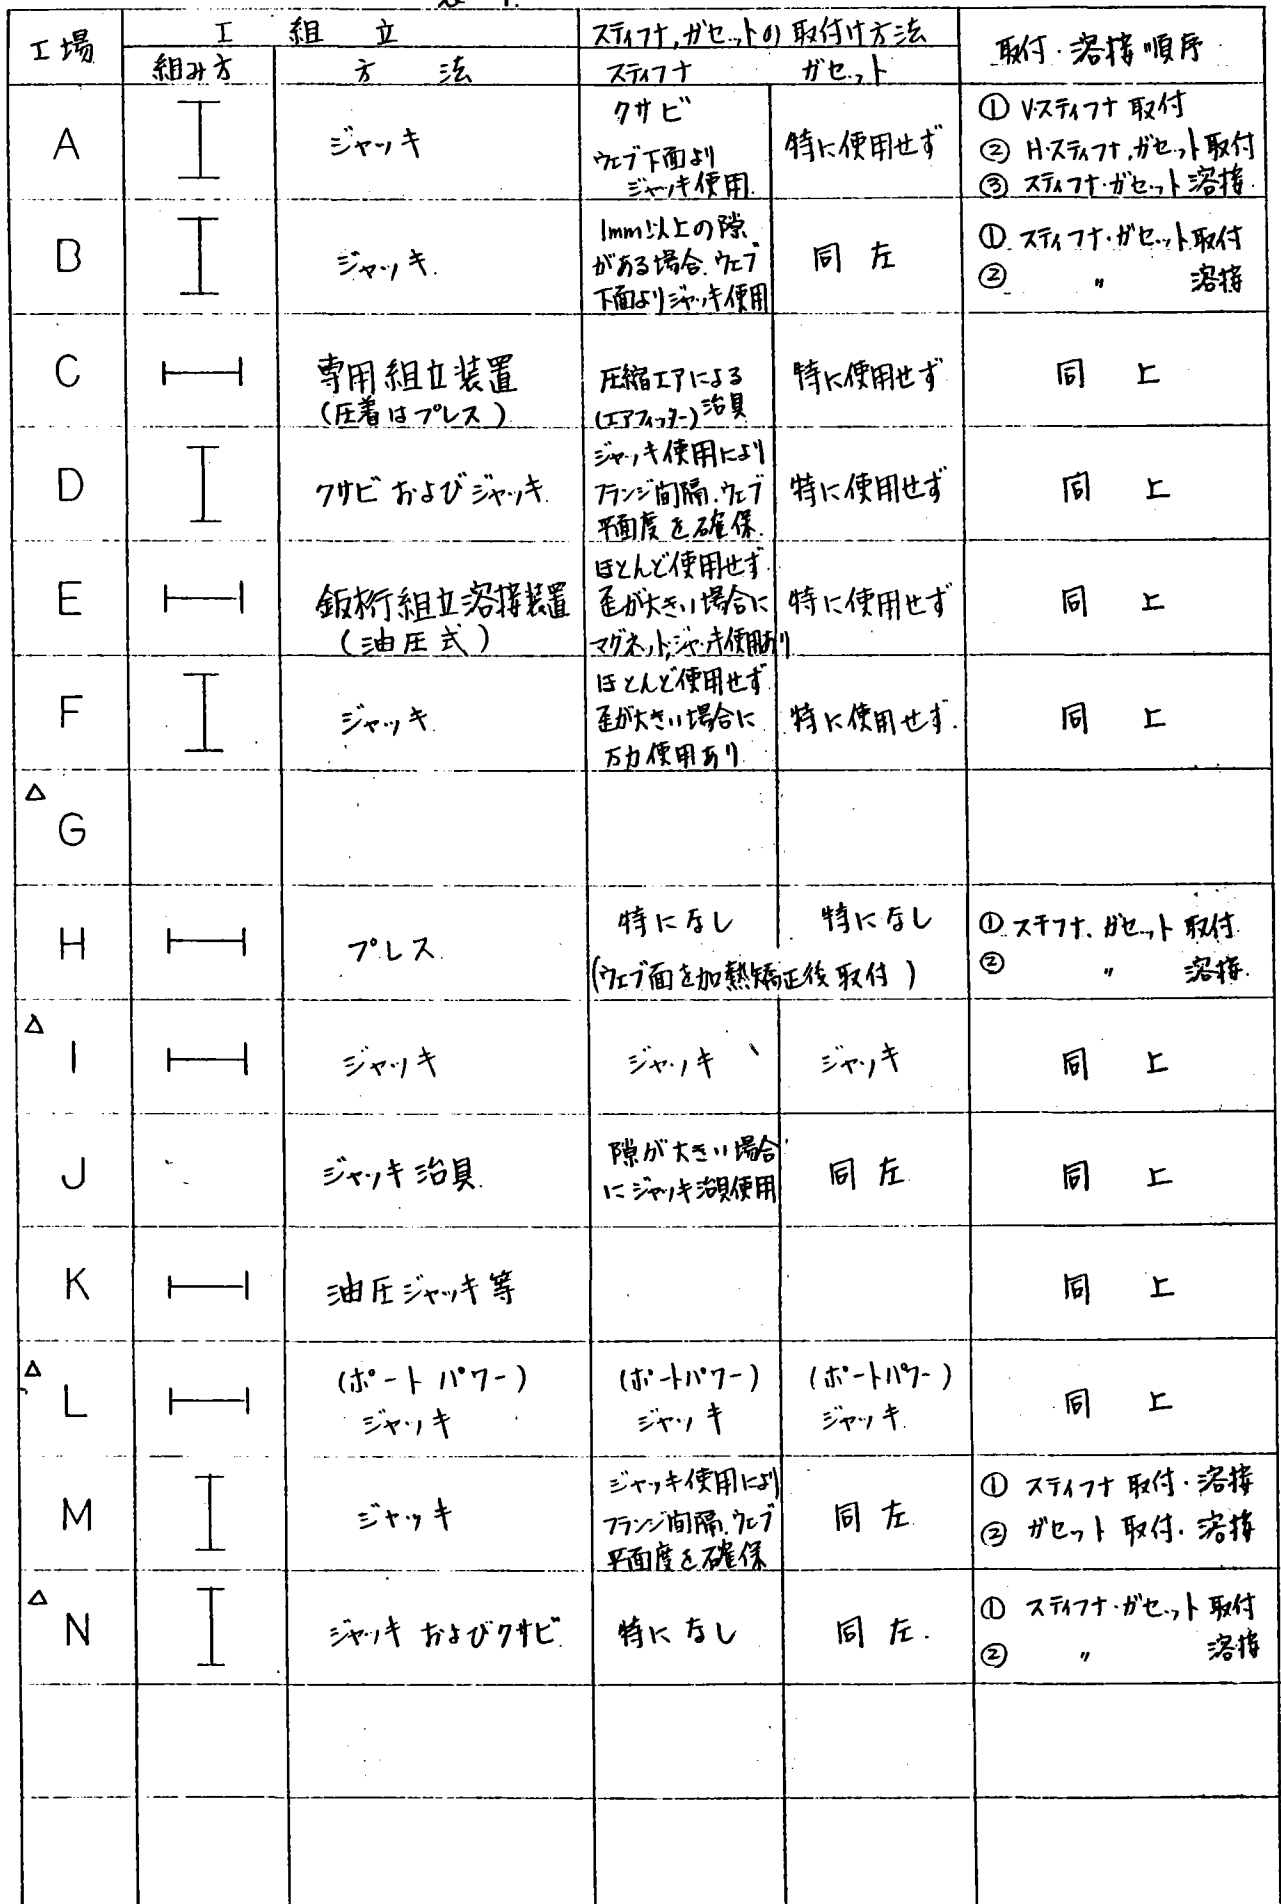 表-1.
工場
I 組 立
スティフナ,ガセットの取付け方法
取付・溶接順序
組み方
方 法
スティフナ
ガセット
A
ジャッキ
クサビ
ウェブ下面より
ジャッキ使用.
特に使用せず
① V.スティフナ 取付
② H.スティフナ,ガセット取付
③ スティフナ・ガセット 溶接.
B
ジャッキ.
1mm以上の隙
がある場合.ウェブ
下面よりジャッキ使用
同 左
① スティフナ・ガセット取付
② 〃 溶接
C
専用組立装置
(圧着はプレス)
圧縮エアによる
(エアフィッター)治具
特に使用せず
同 上
D
クサビおよびジャッキ.
ジャッキ使用により
フランジ間隔.ウェブ
平面度を確保.
特に使用せず
同 上
E
鈑桁組立溶接装置
(油圧式)
ほとんど使用せず
歪が大きい場合に
マグネット,ジャッキ使用あり
特に使用せず
同 上
F
ジャッキ.
ほとんど使用せず.
歪が大きい場合に
万力使用あり.
特に使用せず.
同 上
△
G
H
プレス.
特になし
特になし
(ウェブ面を加熱矯正後取付)
① スチフナ、ガセット 取付.
② 〃 溶接.
△
I
ジャッキ
ジャッキ
ジャッキ
同 上
J
ジャッキ治具.
隙が大きい場合
にジャッキ治具使用
同 左
同 上
K
油圧ジャッキ等
同 上
△
L
(ポートパワー)
ジャッキ
(ポートパワー)
ジャッキ
(ポートパワー)
ジャッキ.
同 上
M
ジャッキ
ジャッキ使用により
フランジ間隔.ウェブ
平面度を確保
同 左
① スティフナ 取付・溶接
② ガセット 取付・溶接
△
N
ジャッキおよびクサビ.
特になし
同 左.
① スティフナ・ガセット 取付
② 〃 溶接